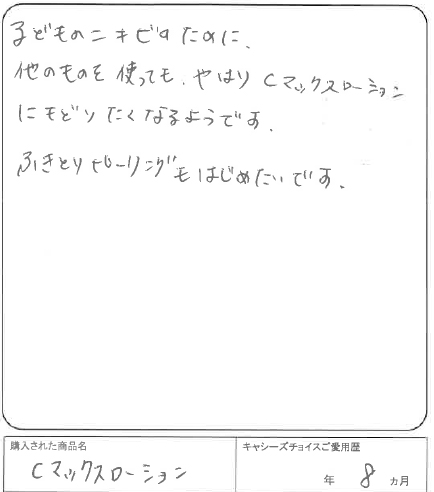 子どものニキビのために、
他のものを使っても、やはりCマックスローション
にもどりたくなるようです。
ふきとりピーリングもはじめたいです。
購入された商品名
Cマックスローション
キャシーズチョイスご愛用歴
年 8 ヵ月